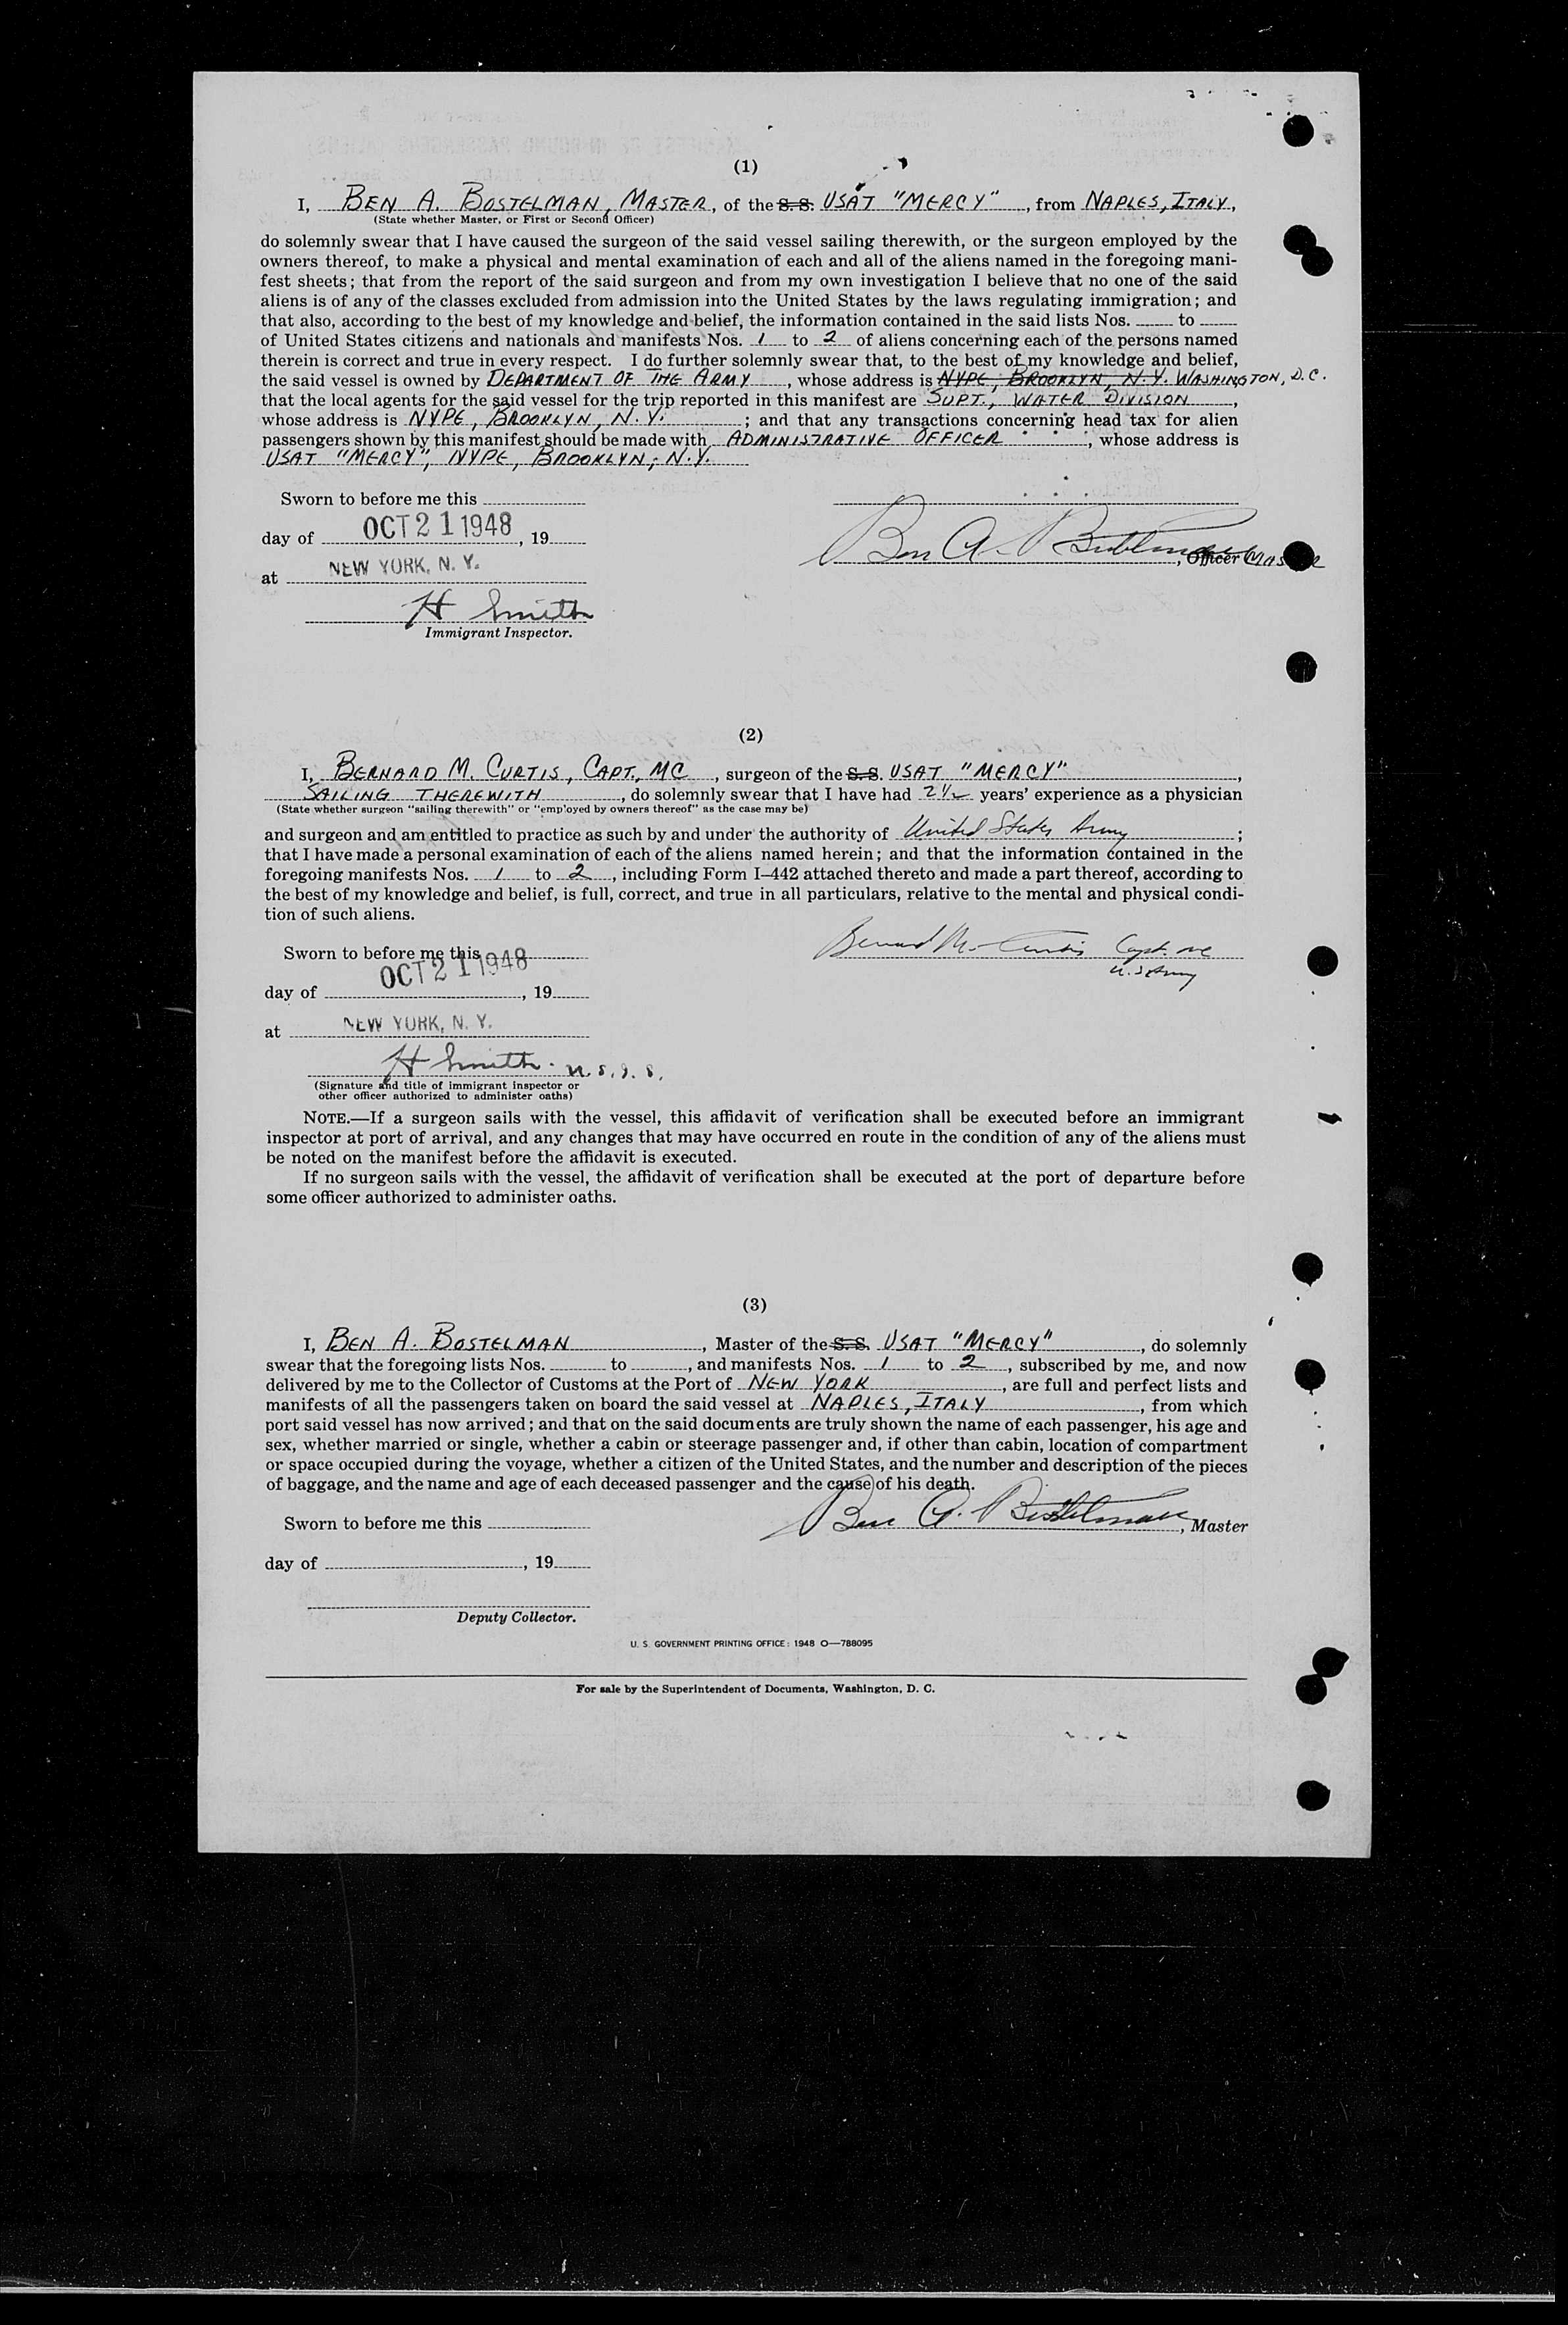 (1)
I, BEN A. BOSTELMAN, MASTER, of the S. S. USAT "MERCY", from NAPLES, ITALY,
(State whether Master, or First or Second Officer)
do solemnly swear that I have caused the surgeon of the said vessel sailing therewith, or the surgeon employed by the
owners thereof, to make a physical and mental examination of each and all of the aliens named in the foregoing mani-
fest sheets; that from the report of the said surgeon and from my own investigation I believe that no one of the said
aliens is of any of the classes excluded from admission into the United States by the laws regulating immigration; and
that also, according to the best of my knowledge and belief, the information contained in the said lists Nos. ____ to ____
of United States citizens and nationals and manifests Nos. 1 to 2 of aliens concerning each of the persons named
therein is correct and true in every respect. I do further solemnly swear that, to the best of my knowledge and belief,
the said vessel is owned by DEPARTMENT OF THE ARMY, whose address is NYPE, BROOKLYN, N.Y. WASHINGTON, D.C.
that the local agents for the said vessel for the trip reported in this manifest are SUPT., WATER DIVISION,
whose address is NYPE, BROOKLYN, N.Y.; and that any transactions concerning head tax for alien
passengers shown by this manifest should be made with ADMINISTRATIVE OFFICER, whose address is
USAT "MERCY", NYPE, BROOKLYN, N.Y.
Sworn to before me this
day of OCT 21 1948, 19
Ben A. Bostelman, Officer Master
at NEW YORK, N. Y.
H Smith
Immigrant Inspector.
(2)
I, BERNARD M. CURTIS, CAPT., MC, surgeon of the S. S. USAT "MERCY",
SAILING THEREWITH, do solemnly swear that I have had 2 1/2 years' experience as a physician
(State whether surgeon "sailing therewith" or "employed by owners thereof" as the case may be)
and surgeon and am entitled to practice as such by and under the authority of United States Army;
that I have made a personal examination of each of the aliens named herein; and that the information contained in the
foregoing manifests Nos. 1 to 2, including Form I-442 attached thereto and made a part thereof, according to
the best of my knowledge and belief, is full, correct, and true in all particulars, relative to the mental and physical condi-
tion of such aliens.
Bernard M. Curtis Capt. MC
U.S Army
Sworn to before me this
OCT 21 1948
day of ____, 19
at NEW YORK, N. Y.
H Smith. U.S.I.S.
(Signature and title of immigrant inspector or
other officer authorized to administer oaths)
NOTE.—If a surgeon sails with the vessel, this affidavit of verification shall be executed before an immigrant
inspector at port of arrival, and any changes that may have occurred en route in the condition of any of the aliens must
be noted on the manifest before the affidavit is executed.
If no surgeon sails with the vessel, the affidavit of verification shall be executed at the port of departure before
some officer authorized to administer oaths.
(3)
I, BEN A. BOSTELMAN, Master of the S. S. USAT "MERCY", do solemnly
swear that the foregoing lists Nos. ____ to ____, and manifests Nos. 1 to 2, subscribed by me, and now
delivered by me to the Collector of Customs at the Port of NEW YORK, are full and perfect lists and
manifests of all the passengers taken on board the said vessel at NAPLES, ITALY, from which
port said vessel has now arrived; and that on the said documents are truly shown the name of each passenger, his age and
sex, whether married or single, whether a cabin or steerage passenger and, if other than cabin, location of compartment
or space occupied during the voyage, whether a citizen of the United States, and the number and description of the pieces
of baggage, and the name and age of each deceased passenger and the cause of his death.
Ben A. Bostelman, Master
Sworn to before me this
day of ____, 19
Deputy Collector.
U. S. GOVERNMENT PRINTING OFFICE: 1948 O—788095
For sale by the Superintendent of Documents, Washington, D. C.